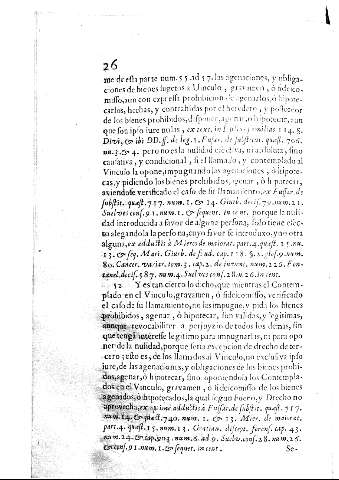 26
me de esta parte num. 55. ad 57. las agenaciones, y obliga-
ciones de bienes sugetos a Vinculo, gravamen, ò fideico-
misso, aun con expressa prohibicion de agenarlos, ò hipote-
carlos, hechas, y contrahidas por el heredero, y posseedor
de los bienes prohibidos, disponer, agenar, ò hipotecar, aun
que son ipso iure nulas, ex text. in l. filius familias 114. §.
Divi, & ibi DD. ff. de leg. 1. Fusar. de substitut. quæst. 706.
nu. 3. & 4. pero no es la nulidad efectiva, ni absoluta, sino
causativa, y condicional, si el llamado, y contemplado al
Vinculo la opone, impugnando las agenaciones, ò hipote-
cas, y pidiendo los bienes prohibidos, agenar, ò hipotecar,
aviendose verificado el caso de su llamamiento, ex Fusar. de
substit. quæst. 717. num. 1. & 14. Giurb. decis. 79. num. 21.
Suelves cons. 91. num. 1. & sequent. in cent. porque la nuli-
dad introducida a favor de alguna persona, solo tiene efec-
to alegandola la persona, cuyo favor se introduxo, y no otra
alguna, ex adductis à Mieres de maiorat. part. 4. quæst. 15. nu.
13. & seq. Mari. Giurb. de feud. cap. 118. §. 2. glos. 9. num.
80. Cancer. variar. tom. 3. cap. 2. de invent. num. 226. Fon-
tanel. decis. 587. num. 4. Suelves cons. 28. n. 26. in cent.
52 Y es tan cierto lo dicho, que mientras el Contem-
plado en el Vinculo, gravamen, ò fideicomisso, verificado
el caso de su llamamiento, no las impugne, y pida los bienes
prohibidos, agenar, ò hipotecar, son validas, y legitimas,
aunque revocabiliter a perjuyzio de todos los demàs, sin
que tenga interesse legitimo para impugnarlas, ni para opo-
ner de la nulidad, porque seria excepcion de drecho de ter-
cero, esto es, de los llamados al Vinculo, no exclusiva ipso
iure, de las agenaciones, y obligaciones de los bienes prohi-
bidos, agenar, ò hipotecar, sino oponiendola los Contempla-
dos en el Vinculo, gravamen, ò fideicomisso de los bienes
agenados, ò hipotecados, la qual luego huere, y Drecho no
aprovecha, ex optime adductis à Fusar. de substit. quæst. 717.
num. 14. & quæst. 740. num. 1. & 13. Mier. de maiorat.
part. 4. quæst. 15. num. 13. Gratian. discept. forens. cap. 43.
num. 24. & cap. 193. num. 8. ad 9. Suelv. cons. 28. num. 26
& cons. 91. num. 1. & sequet. in cent.
Se-